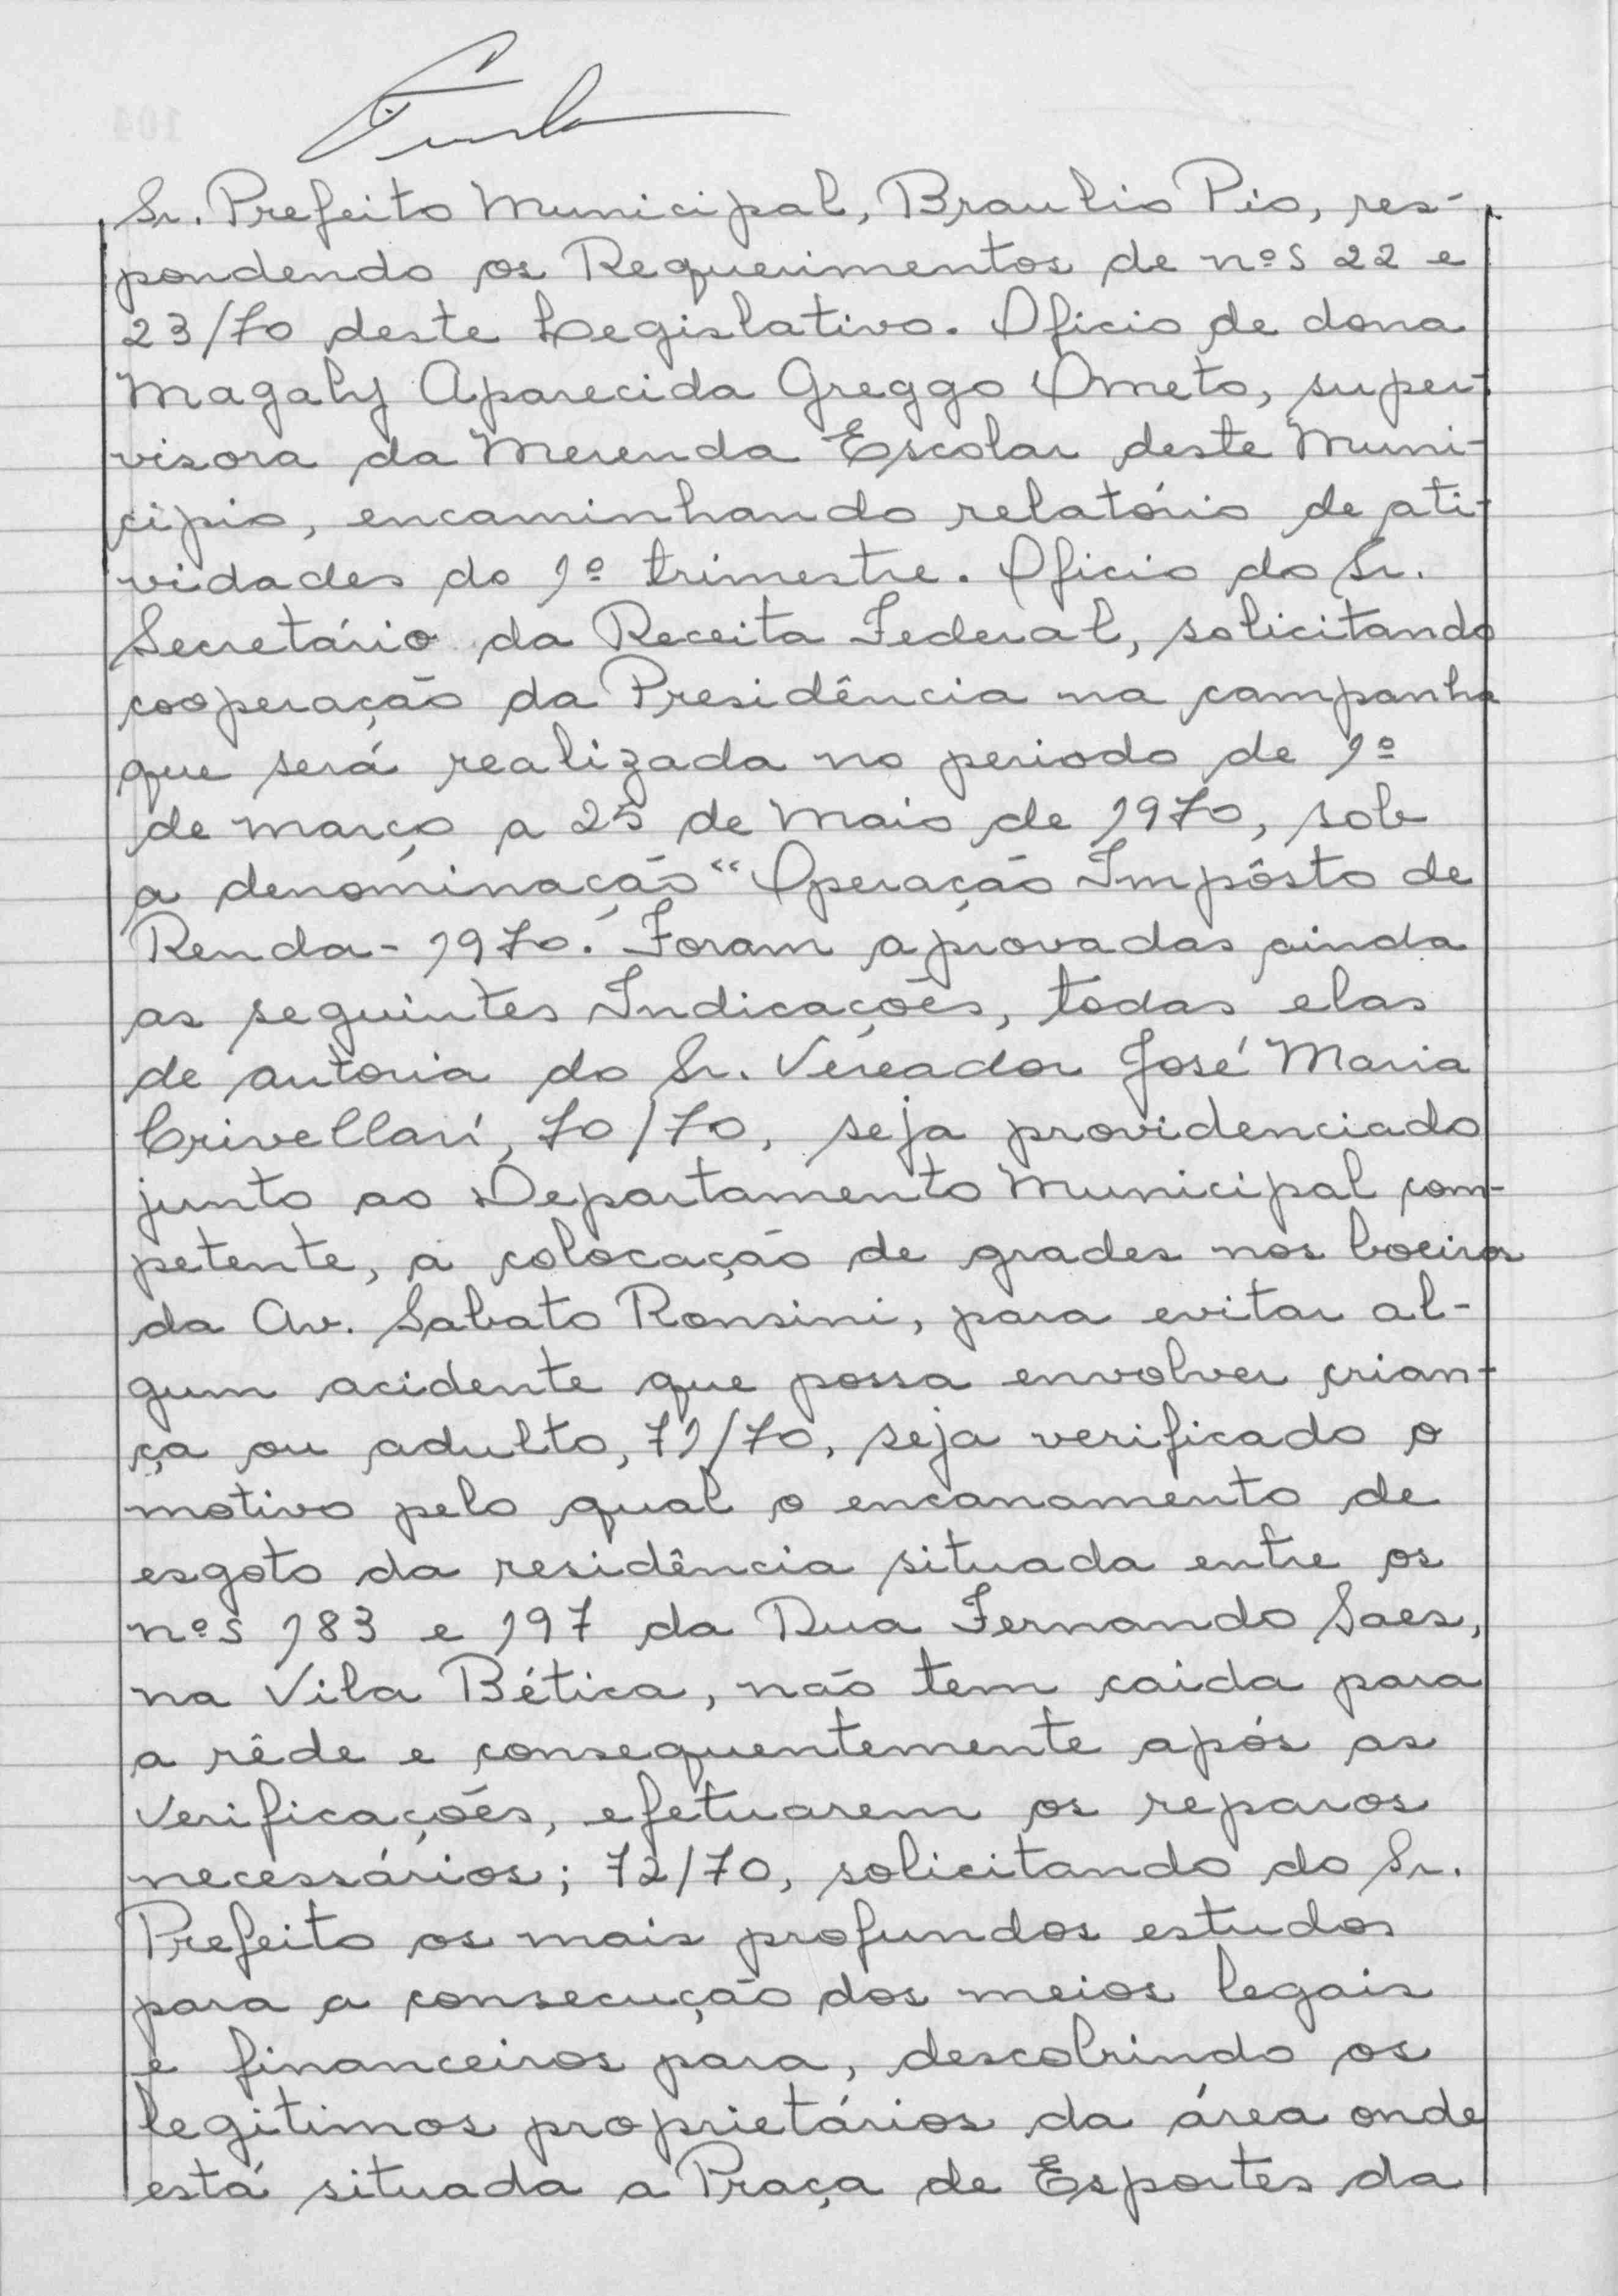 Sr. Prefeito Municipal, Braulio Pio, res-
pondendo os Requerimentos de nºs 22 e
23/70 deste Legislativo. Oficio de dona
Magaly Aparecida Greggo Ometo, super-
visora da Merenda Escolar deste Muni-
cipio, encaminhando relatório de ati-
vidades do 1º trimestre. Oficio do Sr.
Secretário da Receita Federal, solicitando
cooperação da Presidência na campanha
que será realizada no periodo de 1º
de março a 25 de Maio de 1970, sob
a denominação "Operação Impôsto de
Renda - 1970. Foram aprovadas ainda
as seguintes Indicações, todas elas
de autoria do Sr. Vereador José Maria
Crivellari, 70/70, seja providenciado
junto ao Departamento Municipal com-
petente, a colocação de grades nos boeiros
da Av. Sabato Ronsini, para evitar al-
gum acidente que possa envolver crian-
ça ou adulto, 71/70, seja verificado o
motivo pelo qual o encanamento de
esgoto da residência situada entre os
nºs 183 e 197 da Rua Fernando Saes,
na Vila Bética, não tem caida para
a rêde e consequentemente após as
verificações, efetuarem os reparos
necessários; 72/70, solicitando do Sr.
Prefeito os mais profundos estudos
para a consecução dos meios legais
e financeiros para, descobrindo os
legitimos proprietários da área onde
está situada a Praça de Esportes da